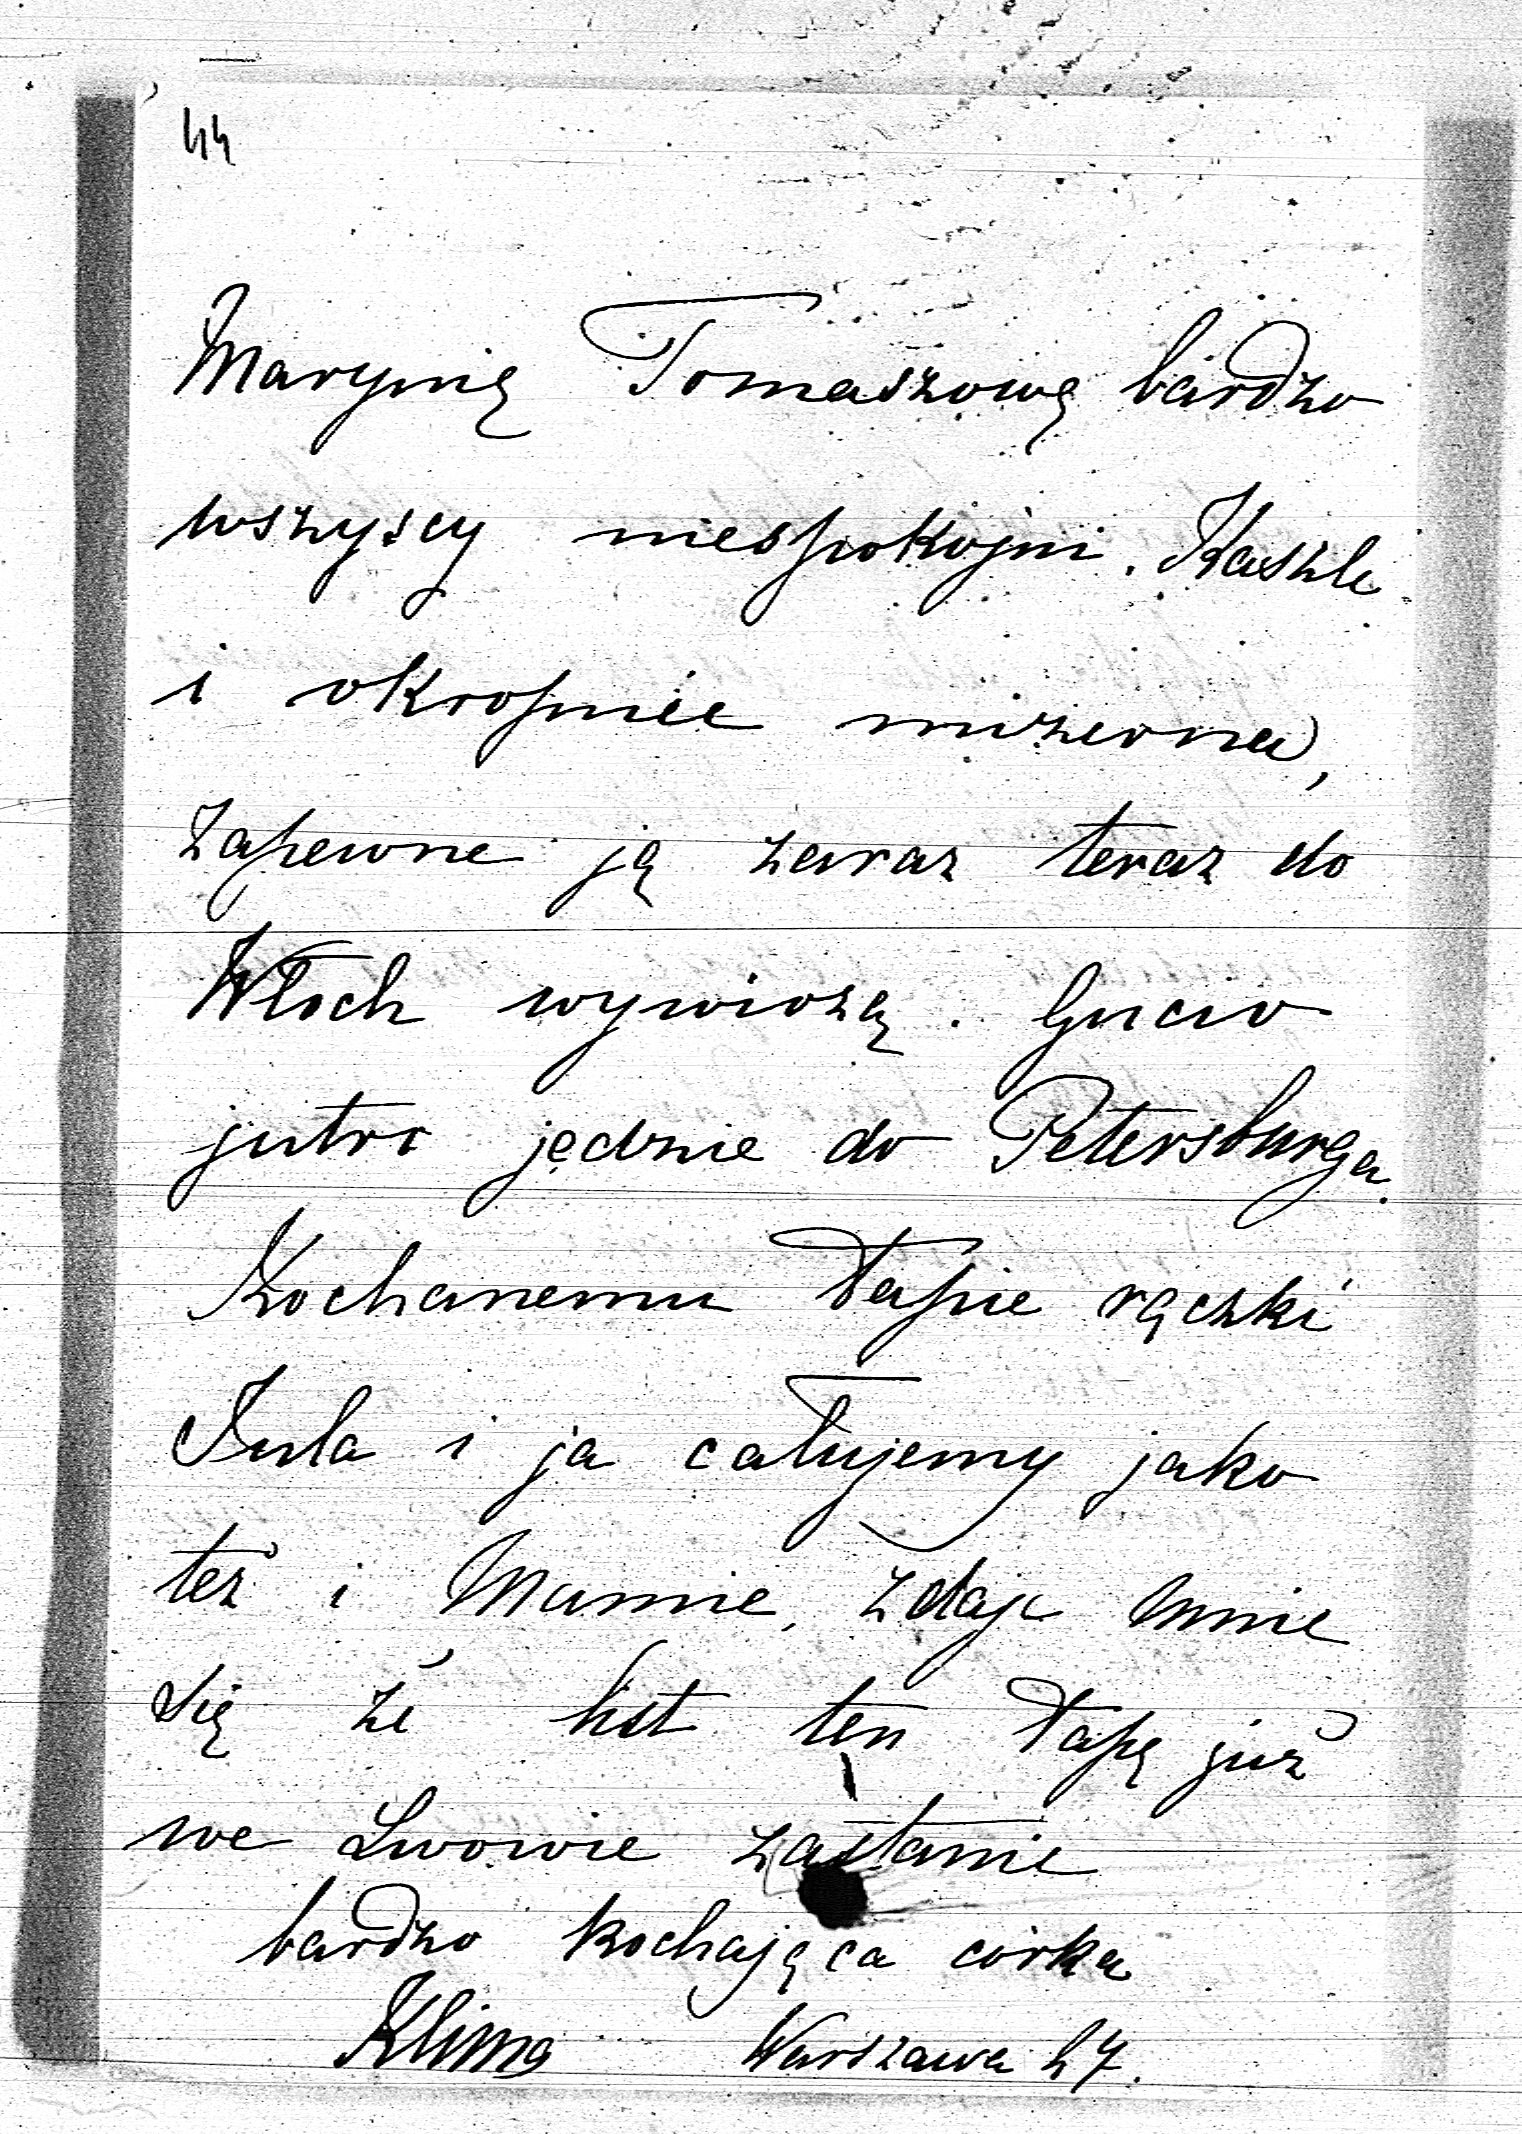 44
Marynię Tomaszową bardzo
wszyscy niespokojni. Kaszle
i okropnie mizerna,
zapewne ją zaraz teraz do
Włoch wywiozą. Gucio
jutro jedzie do Petersburga.
Kochanemu Tapie rączki
Jula i ja całujemy jako
też i Mamie, zdaje mnie
się że list ten Tapę już
we Lwowie zastanie
bardzo kochająca córka
Klima Warszawa 27.